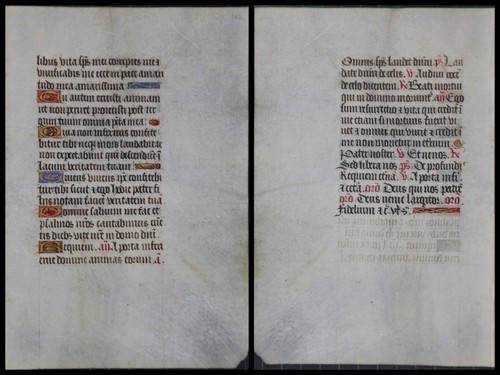 libus vita sp̄s mei corripies me ⁊
vivificabis me ecce in pace amari
tudo mea amarissima
Tu autem eruisti animam
meam ut non periret proiecisti post ter
gum tuum omnia pctā mea
Quia non infernus confite
bitur tibi neqʒ mors laudabit te
non expectabunt qui descendūt ī
lacum veritatem tuam
Vivens vivens ip̄e confitebi
tur tibi sicut ⁊ ego hodie pater fi
liis notam faciet veritatem tuā
Domine salvum me fac et
psalmos nr̄os cantabimus cūc
tis diebʒ vite nr̄e in domo dn̄i
Requiem. añ A porta infe
ri erue domine animas eorum. ā.
Omnis sp̄s laudet dn̄m. p̄s Lau
date dn̄m de celis. v̄. Audivi vocē
de celo dicentem. ℟ Beati mortui
qui in domino moriunt̄. añ Ego
sum resurrectio ⁊ vita qui credit ī
me etiam si mortuus fuerit vi
vet ⁊ omnis qui vivit ⁊ credit ī
me non morietur in eternū.
Pater noster. v̄. Et ne nos. ℟
Sed libera nos. p̄s De profundis
Requiem etnā. v̄. A porta inferi
⁊ cetā. orō Deus qui nos patrē
orō Deus venie largitor. orō.
Fidelium ⁊ c̄. v̄t s̄.